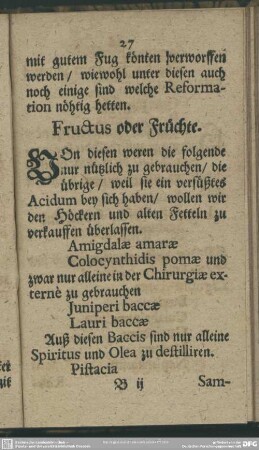 27
mit gutem Fug könten verworffen
werden / wiewohl unter diesen auch
noch einige sind welche Reforma-
tion nöhtig hetten.
Fructus oder Früchte.
VOn diesen weren die folgende
nur nützlich zu gebrauchen / die
übrige / weil sie ein versüßtes
Acidum bey sich haben / wollen wir
den Höckern und alten Fetteln zu
verkauffen überlassen.
Amigdalæ amaræ
Colocynthidis pomæ und
zwar nur alleine in der Chirurgiæ ex-
ternè zu gebrauchen
Juniperi baccæ
Lauri baccæ
Auß diesen Baccis sind nur alleine
Spiritus und Olea zu destilliren.
Pistacia
B ij Sam-
DFG